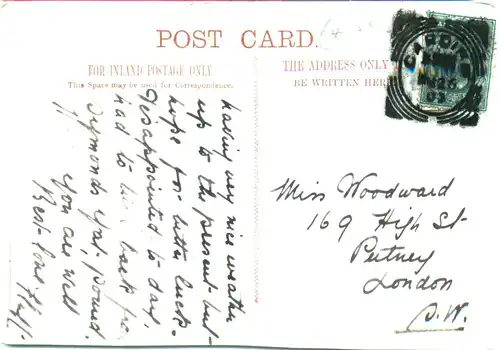 POST CARD.
FOR INLAND POSTAGE ONLY
This Space may be used for Correspondence.
THE ADDRESS ONLY
BE WRITTEN HERE
having very nice weather
up to the present but
hope for better luck.
Disappointed to day.
had to back
Symonds Yat.
you are well
Best love
Miss Woodward
169 High St
Putney
London
S.W.